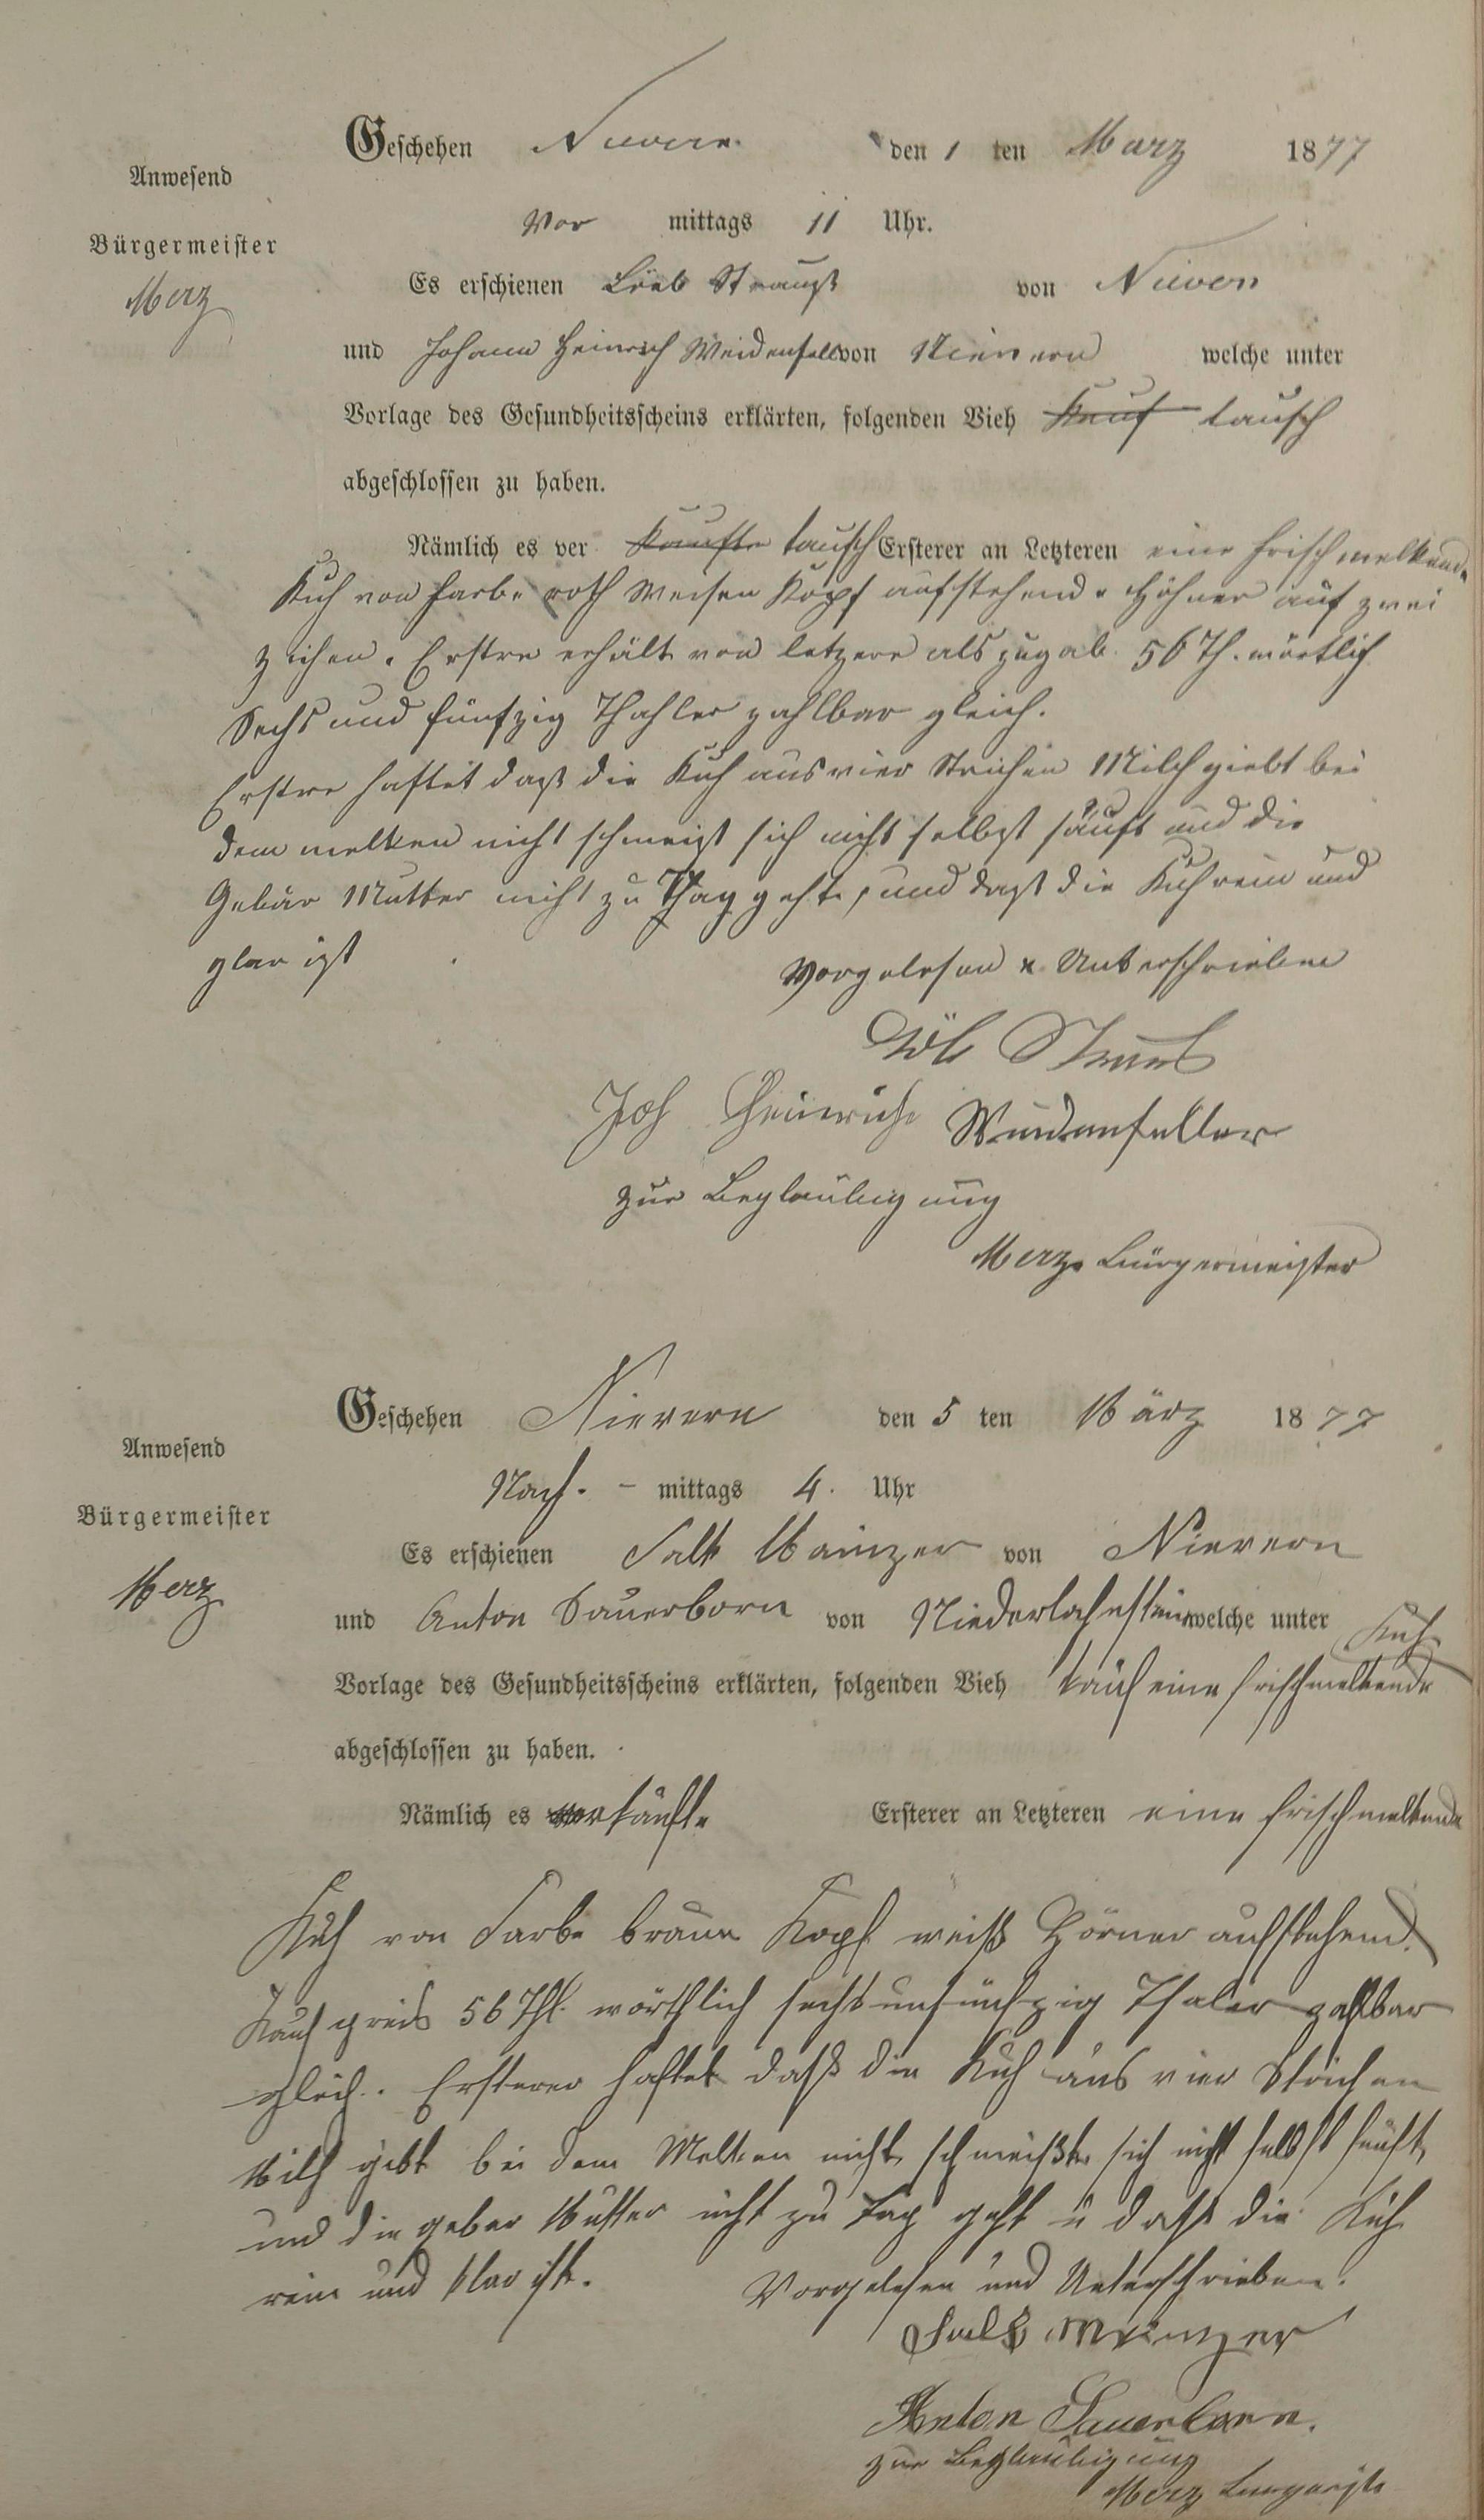 Geschehen Nievern den 1 ten März 1877
Anwesend
Vor mittags 11 Uhr.
Bürgermeister
Merz
Es erschienen Löeb Strauß von Nievern
und Johann Heinrich Weidenfell von Nievern welche unter
Vorlage des Gesundheitsscheins erklärten, folgenden Vieh Kauf tausch
abgeschlossen zu haben.
Nämlich es ver kaufte tausch Ersterer an Letzteren eine frisch melkende
Kuh von Farbe roth Weisen Kopf aufstehende Höhner auf zwei
zeichen. Erstre erhält von letzere als zugabe 56 Th. wörtlich
Sechs und fünfzig Thahler zahlbar gleich.
Erstre haftet daß die Kuh aus vier Strichen Milch giebt bei
dem melken nicht schmeizt sich nicht selbst säuft und die
Gebär Mutter nicht zu Thag geht, und daß die Kuh rein und
glar ist
Vorgelesen & Unterschrieben
Löb Straus
Joh Heinrich Weidenfeller
zur Beglaubigung
Merz Bürgermeister
Geschehen Nievern den 5 ten März 1877
Anwesend
Nach. - mittags 4. Uhr
Bürgermeister
Merz
Es erschienen Falk Mainzer von Nievern
und Anton Sauerborn von Niederlahnstein welche unter
Kuh
Vorlage des Gesundheitsscheins erklärten, folgenden Vieh kauf eine frischmelkende
abgeschlossen zu haben.
Nämlich es verkaufte Ersterer an Letzteren eine frischmelkende
Kuh von Farbe braun Kopf weiß Hörner aufstehend.
Kaufpreis 56 Thl. wörthlich sechsunfünfzig Thaler zahlbar
gleich. Ersterer haftet daß die Kuh aus vier Strichen
Milch gibt bei dem Melken nicht schmeißt sich nicht selbst säuft,
und die geber Mutter nicht zu Tag geht u daß die Kuh
rein und klar ist.
Vorgelesen und Unterschrieben.
Falk Mainzer
Anton Sauerborn.
zur Beglaubigung
Merz